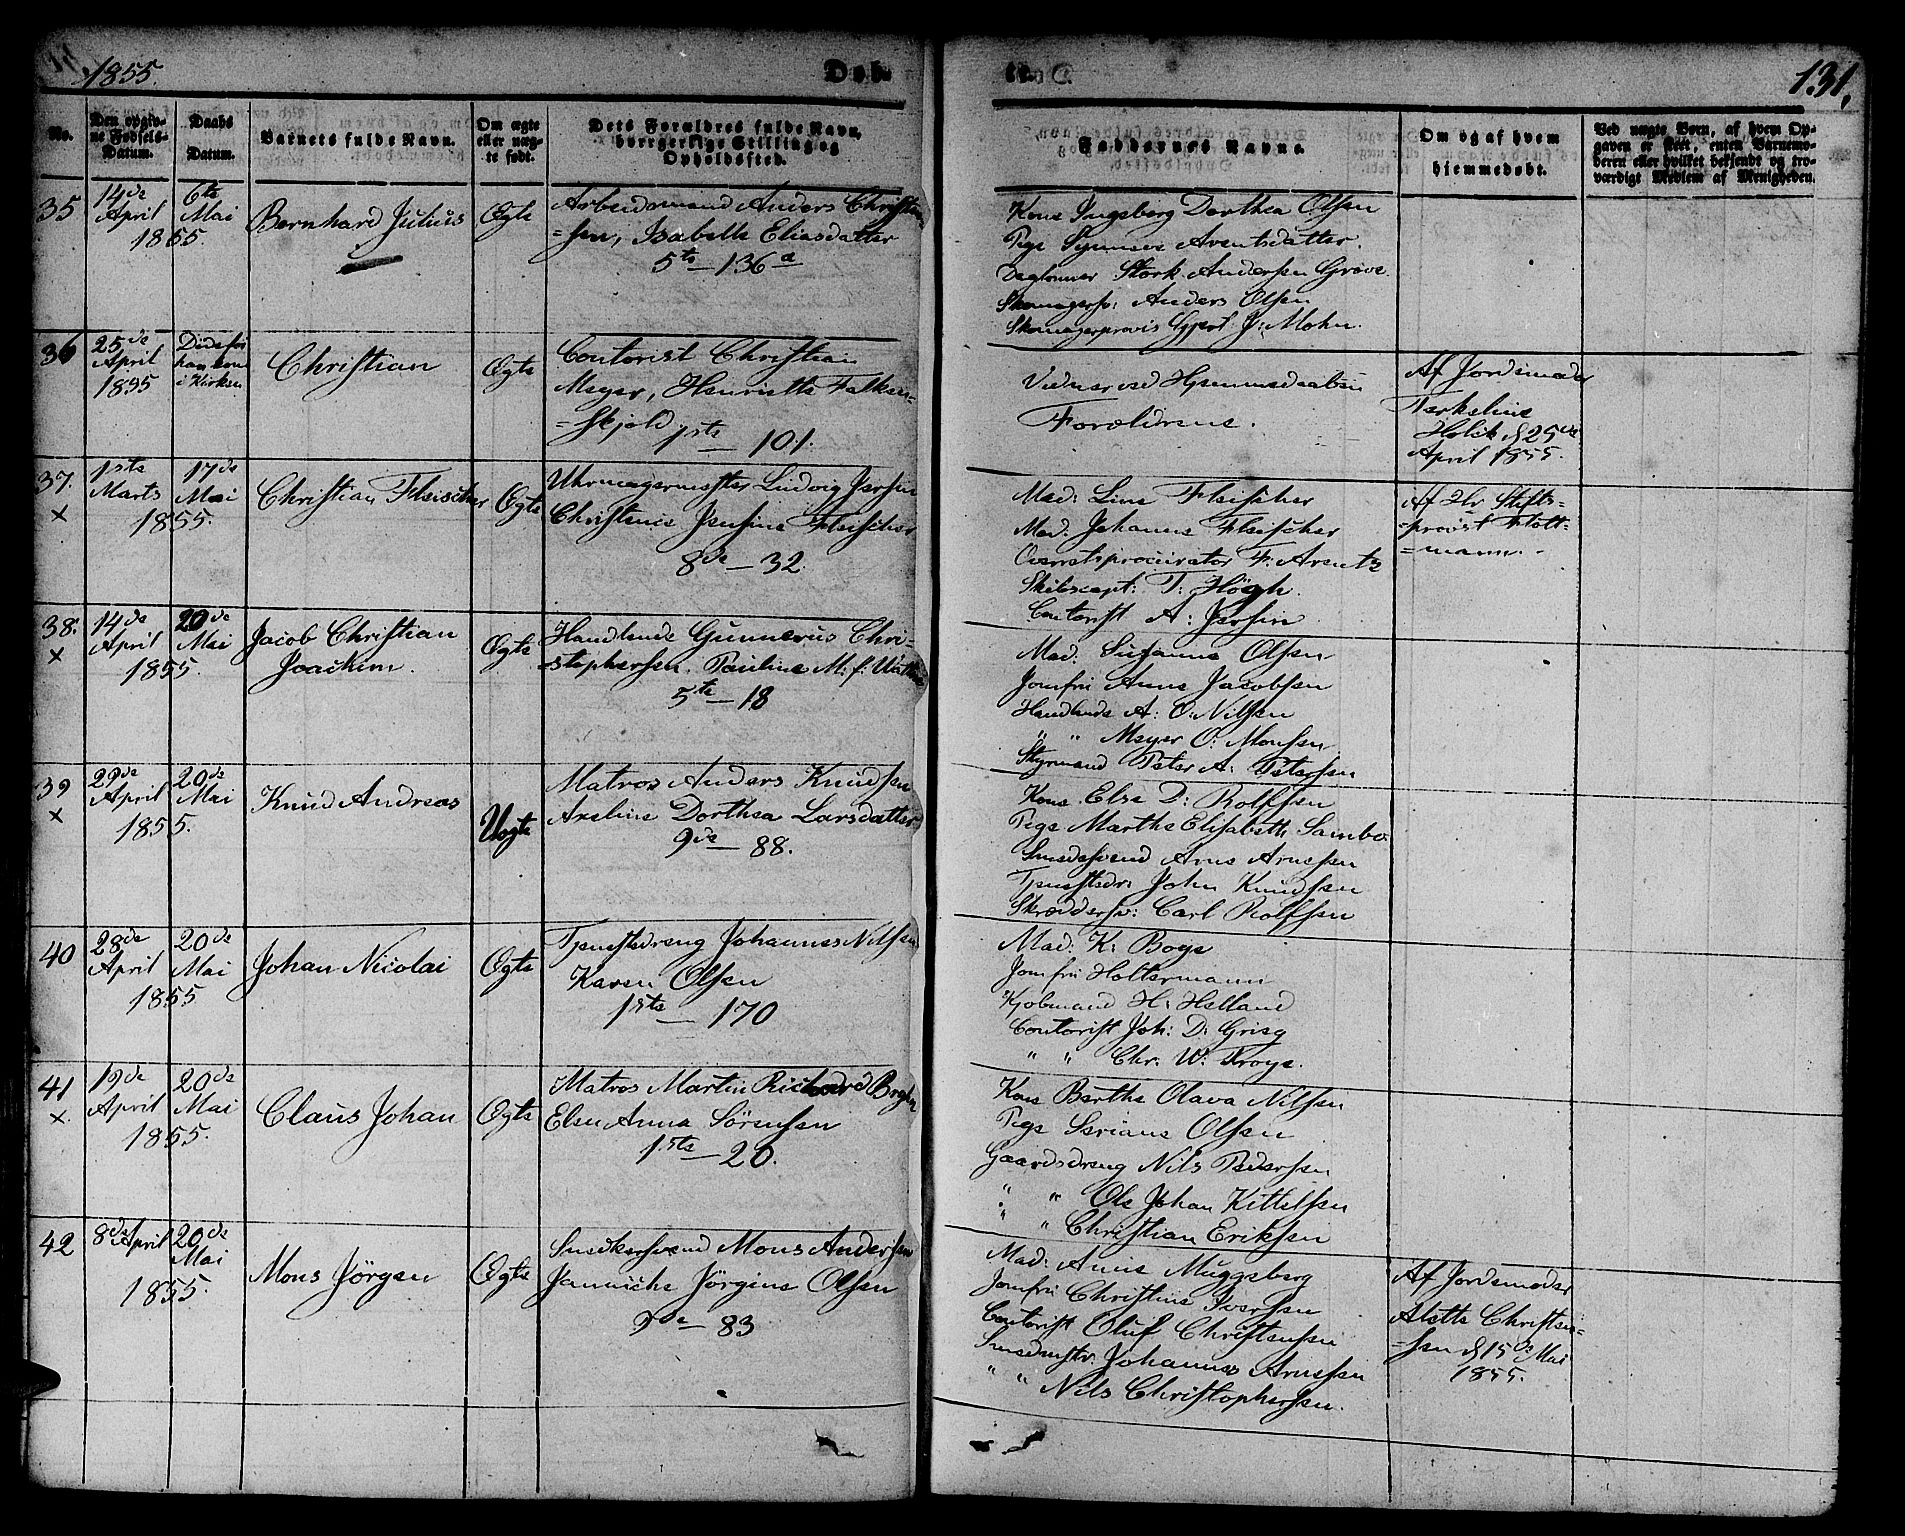 1855.
Døb-
te.
131.
No.
Den opgiv-
ne Fødsels-
Datum.
Daabs
Datum.
Barnets fulde Navn.
Om ægte
eller uæg-
te født.
Dets Forældres fulde Navn,
borgerlige Stilling og
Opholdssted.
Faddernes Navne.
Om og af hvem
hjemmedøbt.
Ved uægte Børn, af hvem Op-
gaven er skeet, enten Barnemo-
deren eller hvilket bekjendt og tro-
værdigt Medlem af Menigheden.
35
14de
April
6te
Mai
1855.
Bernhard Julius
Ægte
Arbeidsmand Anders Christen
-sen, Isabelle Eliasdatter
5te — 136a
Kone Ingeborg Dorthea Olsen
Pige Synneve Arentsdatter.
Dagloinner Stork Andersen Grøve
Skomagersv: Anders Olsen
Skomagerprovis Gjert J: Mohn.
36
25de
April
1855
Døde før
han kom
i Kirken
Christian
Ægte
Contorist Christian
Meyer, Henriette Falken-
-skjold
1ste — 101.
Vidner ved Hjemmedaaben
Forældrene.
Af Jordemoder
Terkeline
Holck d 25de
April 1855.
37.
×
1ste
Marts
17de
Mai
1855.
Christian Fleischer
Ægte
Uhrmagermester Ludvig Jersin
Christence Jensine Fleischer
8de — 32.
Mad: Line Fleischer
Mad: Johanne Fleischer
Overretsprocurator F: Arentz
Skibscapt: T: Høgh.
Contorist A: Jersin.
Af Hr. Stifts-
-provst Flott-
-mann.-
38.
×
14de
April
20de
Mai
1855.
Jacob Christian
Joackim.
Ægte
Handlende Gunnerus Chri-
-stophersen. Pauline M. f.
5te — 18
Mad: Susanne Olsen
Jomfru Anne Jacobsen
Handlende A: O: Nilsen
" " Meyer O: Monsen
Styrmand Peter A: Petersen
39
×
29de
April
20de
Mai
1855.
Knud Andreas
Uægte
Matros Anders Knudsen
Axeline Dorthea Larsdatter
9de — 88.
Kone Else D: Rolfsen
Pige Marthe Elisabeth Sambo.
Smedesvend Arne Arnesen
Tjenestedr: John Knudsen
Skræddersv: Carl Rolfsen
40
28de
April
20de
Mai
1855.
Johan Nicolai
Ægte
Tjenstedreng Johannes Nilsen
Karen Olsen
1ste — 170
Mad: K: Boge
Jomfru Holtermann
Kjøbmand H: Helland
Contorist Joh: D: Grieg
" " Chr. W: Troye.
41
×.
19de
April
20de
Mai
1855.
Claus Johan
Ægte
Matros Martin Richard
Elen Anna Sörensen
1ste — 20.
Kone Berthe Olava Nilsen
Pige Seriane Olsen
Gaardsdreng Nils Pedersen
" " Ole Johan Kittelsen
" " Christian Eriksen
42
8de April
20de
Mai
1855.
Mons Jörgen
Ægte
Snedkersvend Mons Andersen
Jannicke Jörgine Olsen
9de — 83
Mad: Anne Muggeberg
Jomfru Christine Iversen
Contorist Oluf Christensen
Smedmstr. Johannes Arnesen
" " Nils Christophersen.
Af Jordemoder
Alette Christen-
-sen d 15de Mai
1855.